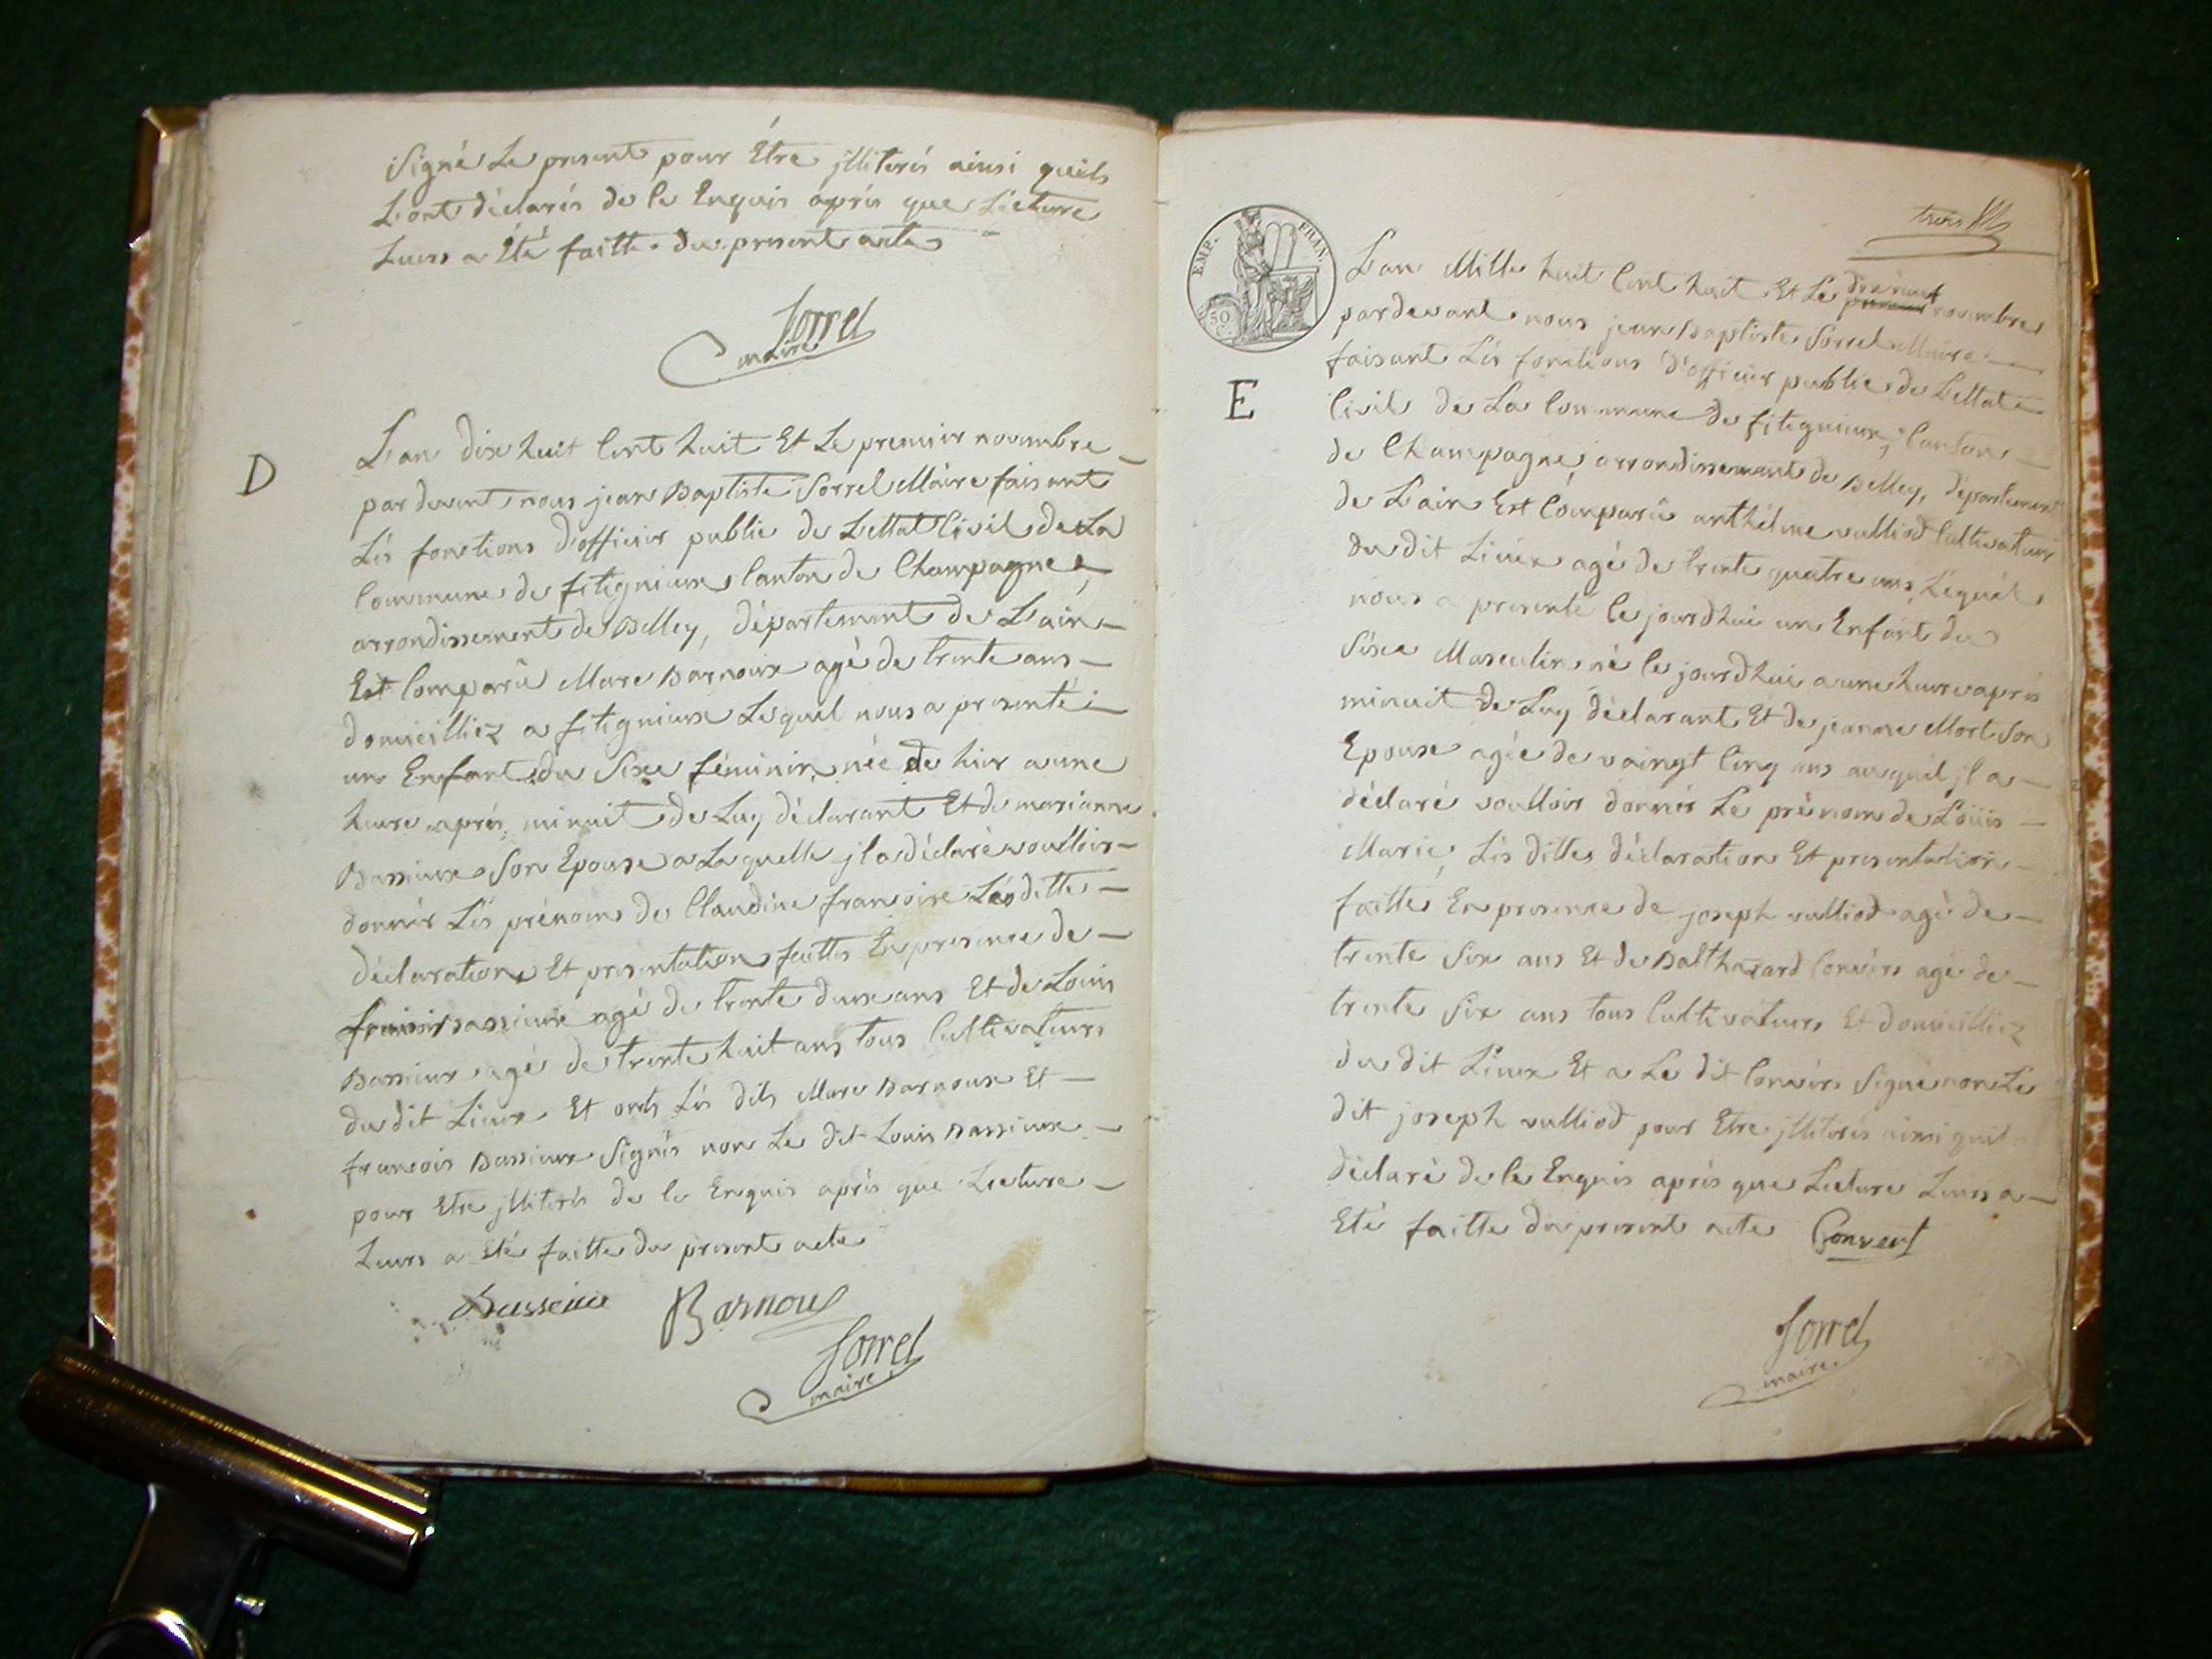 Signé Le present pour Etre jlliterés ainsi quils
L'ont déclarés de le Enquis après que Lecture
Leurs a Eté faitte du present acte
Sorrel
maire
D
L'an dix huit Cent huit Et Le premier novembre
par devant nous jean Baptiste Sorrel Maire faisant
Lés fonctions d'officier public de L'ettat Civil de La
Commune de fitignieux Canton de Champagne
arrondissement de Belley, département de L'ain
Est Comparû Marc Barnoux agé de trente ans
domicilliez a fitignieux Lequel nous a presenté
un Enfant du Sexe féminin née de hier a une
heure après minuit de Luy déclarant Et de marianne
Bassieux Son Epouse a Laquelle jl a déclaré voulloir
donnér Lés prénoms de Claudine francoise Lés ditte
déclaration Et presentation faittes En presence de
francois Bassieux agé de trente deux ans Et de Louis
Bassieux agé de trente huit ans tous Cultivateurs
du dit Lieux Et onts Lés dits Marc Barnoux Et
francois Bassieux Signés non Le dit Louis Bassieux
pour Etre jlliterés de le Enquis après que Lecture
Leurs a Eté faitte du present acte
Bassieux Barnoux
Sorrel
maire
trois
EMP. FRAN.
50
C.
E
L'an Mille huit Cent huit Et Le dix neuf premier novembre
pardevant nous jean Baptiste Sorrel Maire
faisant Lés fonctions d'officier public de L'ettat
Civil de La Commune de fitignieux, Canton
de Champagne, arrondissement de Belley, département
de L'ain Est Comparû anthélme vulliod Cultivateur
du dit Lieux agé de trente quatre ans, Lequél
nous a presenté Ce jourdhui un Enfant du
Séxe Masculin né Ce jourdhui a une heure après
minuit de Luy déclarant Et de jeanne Mort Son
Epouse agée de vaingt Cinq ans auquél jl a
déclaré voulloir donnér Le prénom de Loüis
Marie, Lés dittes déclaration Et presentation
faittes En presence de joseph vulliod agé de
trente Six ans Et de Balthazard Convérs agé de
trente Six ans tous Cultivateurs Et domicilliez
du dit Lieux Et a Le dit Convérs Signé non Le
dit joseph vulliod pour Etre jlliterés ainsi quil
déclaré de le Enquis après que Lecture Leurs a
Eté faitte du present acte Convert
Sorrel
maire